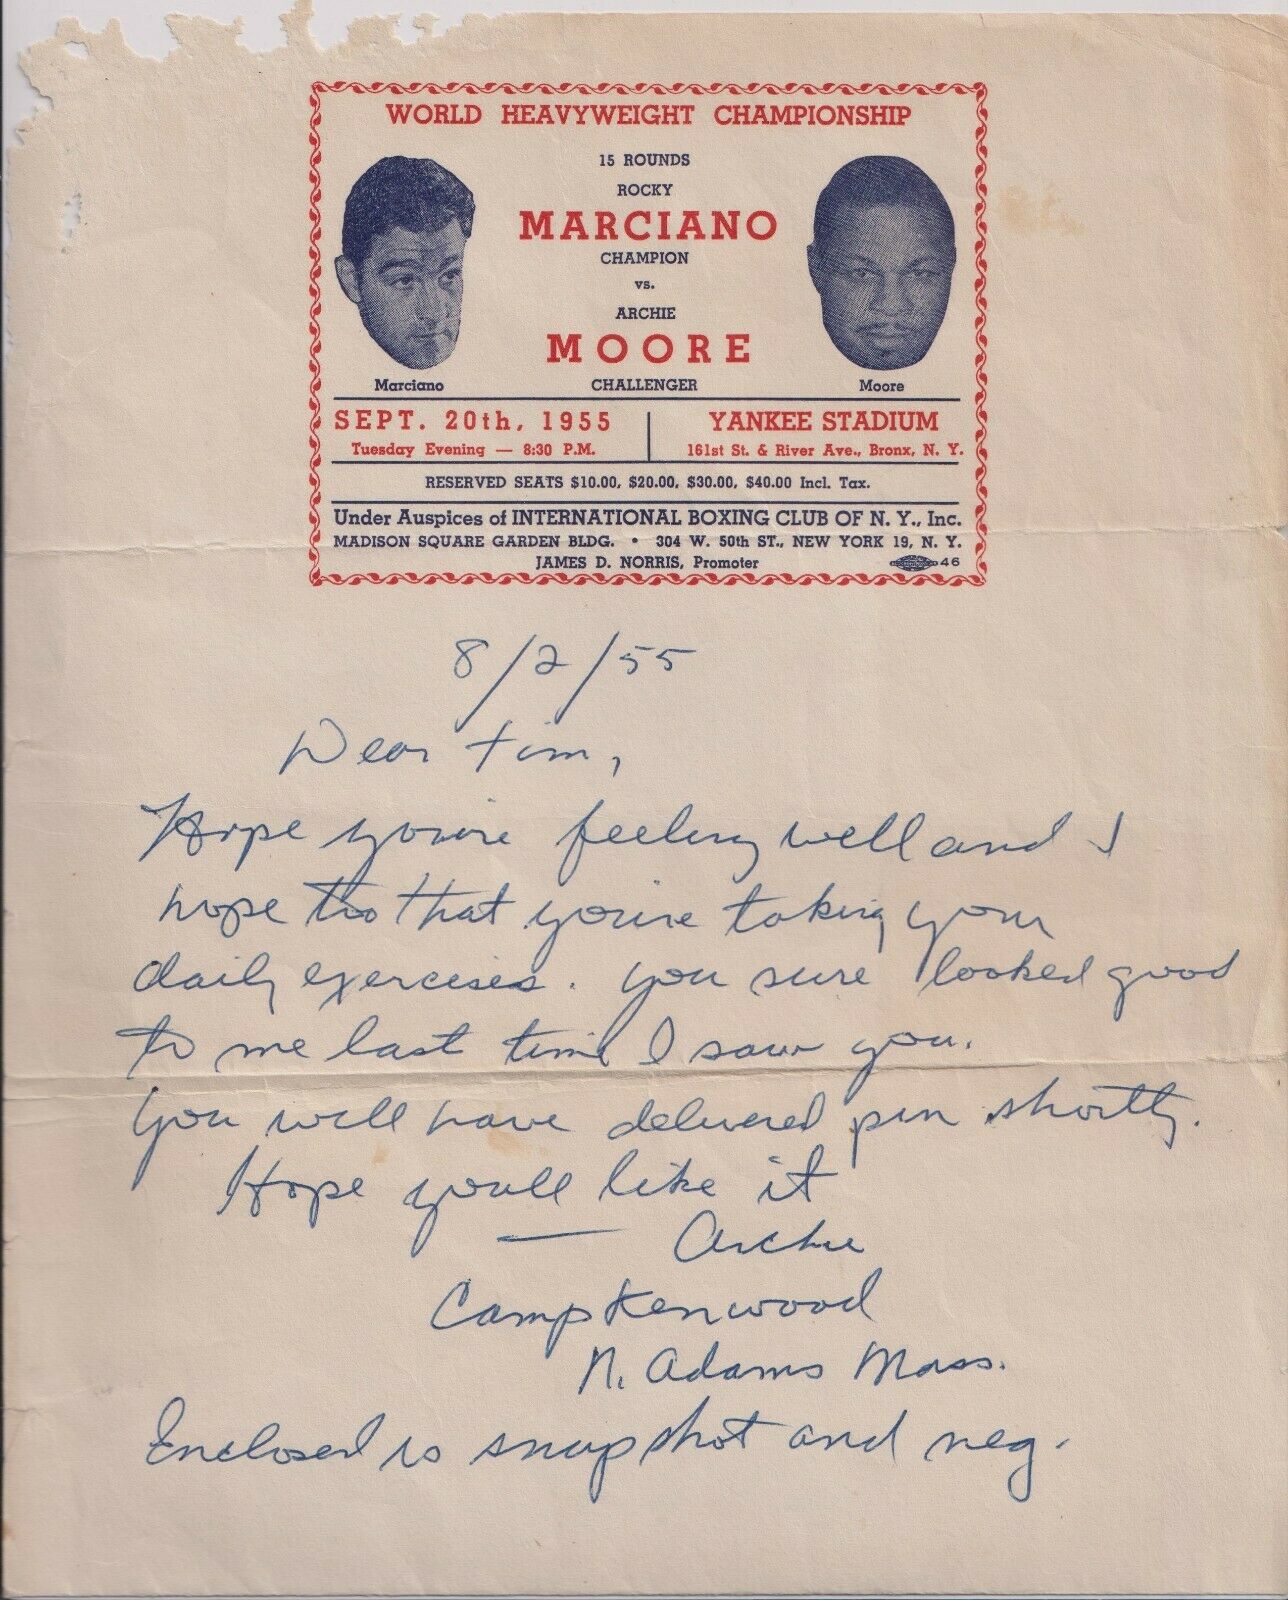 WORLD HEAVYWEIGHT CHAMPIONSHIP
15 ROUNDS
ROCKY
MARCIANO
CHAMPION
vs.
ARCHIE
MOORE
Marciano CHALLENGER Moore
SEPT. 20th, 1955 YANKEE STADIUM
Tuesday Evening — 8:30 P.M. 161st St. & River Ave., Bronx, N. Y.
RESERVED SEATS $10.00, $20.00, $30.00, $40.00 Incl. Tax.
Under Auspices of INTERNATIONAL BOXING CLUB OF N. Y., Inc.
MADISON SQUARE GARDEN BLDG. • 304 W. 50th ST., NEW YORK 19, N. Y.
JAMES D. NORRIS, Promoter 46
8/2/55
Dear Tim,
Hope you're feeling well and I
hope too that you're taking your
daily exercises. You sure looked good
to me last time I saw you.
You will have delivered pin shortly.
Hope you'll like it
— Archie
Camp Kenwood
N. Adams Mass.
Enclosed is snapshot and neg.